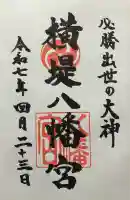 必勝出世の大神
横堤八幡宮
令和七年四月二十三日